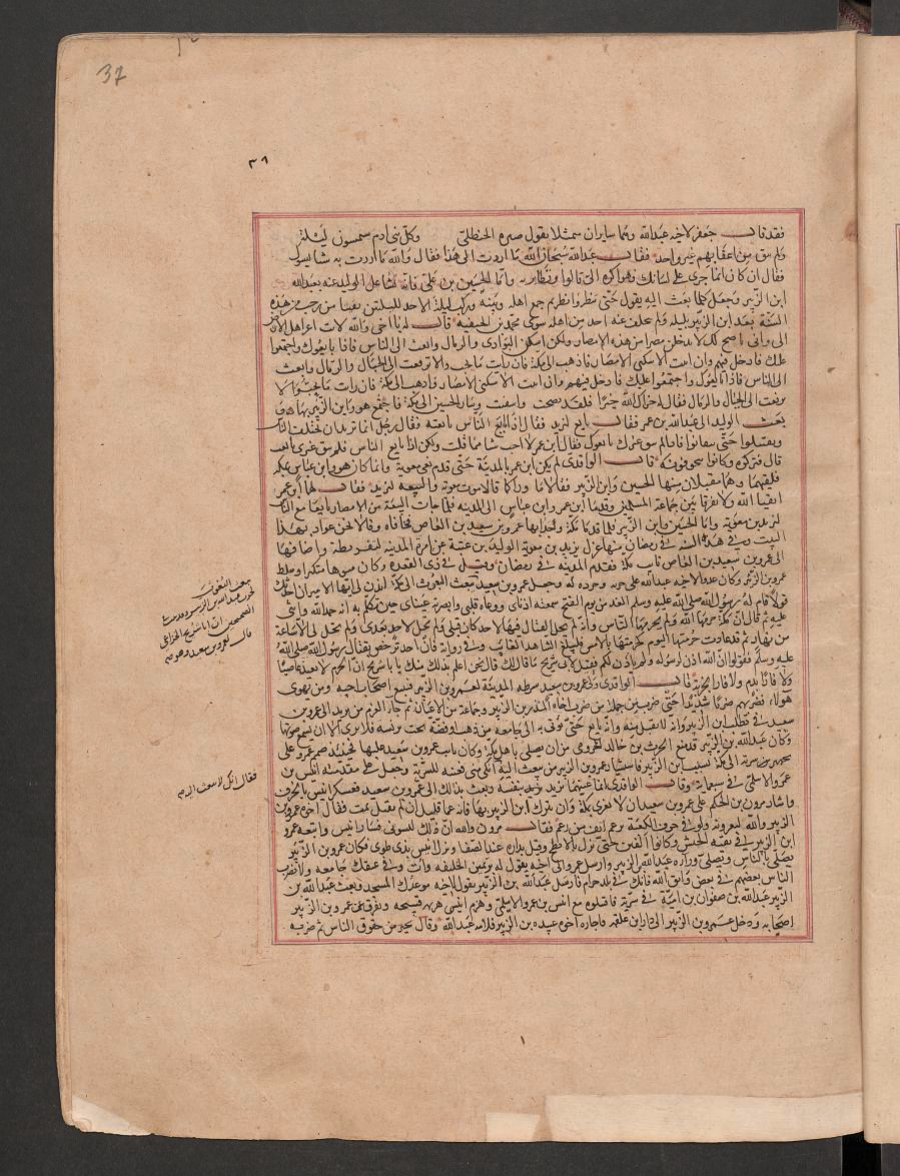 37
٣٦
فقد قال جعفر لاخيه عبدالله وهما سايران متمثلا بقول صبره الحنظلي وكل بني ادم سيمسون ليلة
ولم يبق من اعقابهم غير واحد فقال عبدالله سبحان الله ما اردت الى هذا فقال والله ما اردت به شيا يسوك
فقال ان كان انما جرى على لسانك فهو اكره الى قالوا وتطير واما الحسين بن علي فانه تشاغل الوليد عنه بعبدالله
ابن الزبير وجعل كلما بعث اليه يقول حتى تنظر وننظر ثم جمع اهله وبنيه وركب ليلة الاحد لليلتين بقيتا من رجب من هذه
السنة بعد ابن الزبير بليله ولم يتخلف عنه احد من اهله سوى محمد بن الحنفيه قال له يا اخي والله لانت اعز اهل الارض
الي واني ناصح لك لا تدخلن مصرا من هذه الامصار ولكن اسكن البوادي والرمال وابعث الى الناس فاذا بايعوك واجتمعوا
عليك فادخل فيهم وان ابيت الا سكنى الامصار فاذهب الى مكة فان رايت ما تحب والا ترفعت الى الجبال والرمال وابعث
الى الناس فاذا بايعوك واجتمعوا عليك فادخل فيهم وان ابيت الا سكنى الامصار فاذهب الى مكة فان رايت ما تحب والا
ترفعت الى الجبال والرمال فقال له جزاك الله خيرا فلقد نصحت واشفقت وسار الحسين الى مكة فاجتمع هو وابن الزبير بها
بعث الوليد الى عبدالله بن عمر فقال بايع ليزيد فقال اذا بايع الناس بايعته فقال رجل انما تريد ان تختلف الناس
ويقتتلوا حتى يتفانوا فاذا لم يبق غيرك بايعوك فقال ابن عمر لا احب شيا مما قلت ولكن اذا بايع الناس فلم يبق غيري بايعت
قال فتركوه وكانوا يتخوفونه قال الواقدي لم يكن ابن عمر بالمدينة حتى قدم نعي معوية وانما كان هو وابن عباس بمكه
فلقيهما وهما مقبلان منها الحسين وابن الزبير فقالا ما وراكما قالا موت معوية والبيعه ليزيد فقال لهما ابن عمر
اتقيا الله ولا تفرقا بين جماعة المسلمين وقدما ابن عمر وابن عباس الى المدينه فلما جات البيعة من الامصار بايعا مع الناس
ليزيد بن معوية واما الحسين وابن الزبير فلما قدما مكة وجدا بها عمرو بن سعيد بن العاص فخافاه وقالا نحن عواذ بهذا
البيت وفي هذه السنه في رمضان منها عزل يزيد بن معوية الوليد بن عتبة عن امرة المدينه لتفريطه واضافها
الى عمرو بن سعيد بن العاص نائب مكة فقدم المدينه في رمضان وقيل في ذي القعده وكان متوها متكبرا وسلط
عمرو بن الزبير وكان عدوا لاخيه عبدالله على حربه وجرده له وجعل عمرو بن سعيد يبعث البعوث الى مكة ايذن لي ايها الامير ان احدثك
قولا قام له رسول الله صلى الله عليه وسلم الغد من يوم الفتح سمعته اذناي ووعاه قلبي وابصرته عيناي حين تكلم به انه حمد الله واثنى
عليه ثم قال ان مكة حرمها الله ولم يحرمها الناس وانه لم يحل القتال فيها لاحد كان قبلي ولم يحل لاحد بعدي ولم تحل لي الا ساعة
من نهار ثم قد عادت حرمتها اليوم كحرمتها بالامس فليبلغ الشاهد الغائب وفي رواية فان احد ترخص بقتال رسول الله صلى الله
عليه وسلم فقولوا ان الله اذن لرسوله ولم ياذن لكم فقيل لابي شريح ما قال لك قال نحن اعلم بذلك منك يا با شريح ان الحرم لا يعيذ عاصيا
ولا فارا بدم ولا فارا بخربة قال الواقدي ولى عمرو بن سعيد شرطه المدينة لعمرو بن الزبير فتتبع اصحاب اخيه ومن يهوى
هواه فضربهم ضربا شديدا حتى ضرب من جملة من ضرب اخاه المنذر بن الزبير وجماعة من الاعيان ثم جاء العزم من يزيد الى عمرو بن
سعيد في تطلب ابن الزبير وانه لا يقبل منه وان بايع حتى يؤتى به الي في جامعه من ذهب او فضة تحت برنسه فلا يرى الا انه يسمع صوتها
وكان عبدالله بن الزبير قد منع الحرث بن خالد المخزومي من ان يصلي باهل مكة وكان نائب عمرو بن سعيد عليها فحينئذ صمم عمرو على
تجهيز سرية الى مكة بسبب ابن الزبير فاستشار عمرو بن الزبير من نبعث اليه انكى مني فعينه للسرية وجعل على مقدمته انيس بن
عمرو الاسلمي في سبعماية وقال الواقدي انما عينهما يزيد بن معوية نفسه وبعث بذلك الى عمرو بن سعيد فعسكر انيس بالجرف
واشار مرون بن الحكم على عمرو بن سعيد ان لا يغزى مكة وان يترك ابن الزبير بها فانه عما قليل ان لم يقتل يمت فقال اخوه عمرو بن
الزبير والله لنغزونه ولو في جوف الكعبة برغم انف من رغم فقال مرون والله ان ذلك ليسوني فسار انيس واتبعه عمرو
ابن الزبير في بقية الجيش وكانوا الفين حتى نزل بالابطح وقيل بداره عند الصفا ونزل انيس بذي طوى فكان عمرو بن الزبير
يصلي بالناس ويصلي وراءه عبدالله بن الزبير وارسل عمرو الى اخيه يقول له بر يمين الخليفه وات وفي عنقك جامعه ولا تضرب
الناس بعضهم في بعض واتق الله فانك في بلد حرام فارسل عبدالله بن الزبير يقول لاخيه موعدك المسجد وبعث عبدالله بن
الزبير عبدالله بن صفوان بن امية في سرية فاقتتلوا مع انيس بن عمرو الاسلمي وهزم انيس هزيمة قبيحه وتفرق عن عمرو بن الزبير
اصحابه ودخل عمرو بن الزبير الى دار ابن علقمه فاجاره اخوه عبيده بن الزبير فلامه عبدالله وقال تجير من حقوق الناس ثم ضربه
يبعث البعوث
لحرب عبدالله بن الزبير وقد ثبت
الصحيحين ان ابا شريح الخزاعي
قال لعمرو بن سعيد وهو
فقال انك لا تبعث اليه